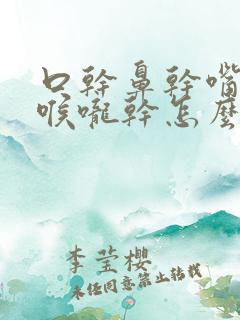 口幹鼻幹嘴
喉嚨幹怎麼
李莹樱
未经同意禁止转载